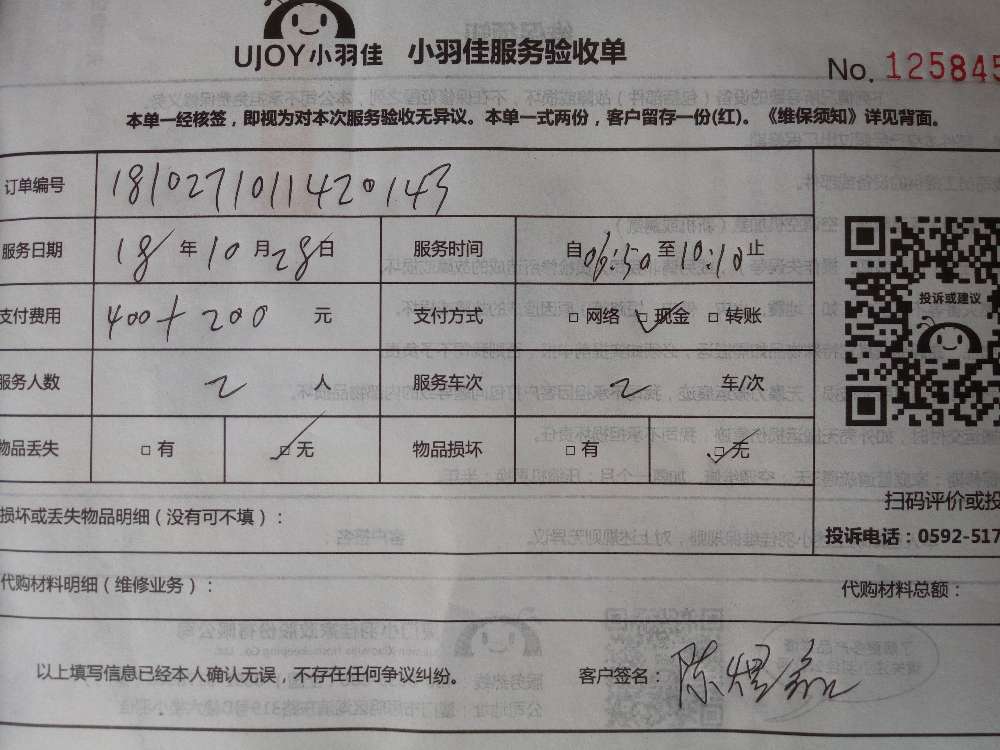 UJOY小羽佳 小羽佳服务验收单
No. 125845
本单一经核签，即视为对本次服务验收无异议。本单一式两份，客户留存一份(红)。《维保须知》详见背面。
订单编号 1810271011420143
服务日期 18 年 10 月 28 日 服务时间 自08:50至10:10止
支付费用 400+200 元 支付方式 □ 网络 □ 现金 □ 转账
服务人数 2 人 服务车次 2 车/次
物品丢失 □ 有 □ 无 物品损坏 □ 有 □ 无
投诉或建议
扫码评价或投
投诉电话：0592-517
损坏或丢失物品明细（没有可不填）：
代购材料明细（维修业务）： 代购材料总额：
以上填写信息已经本人确认无误，不存在任何争议纠纷。 客户签名：陈煜